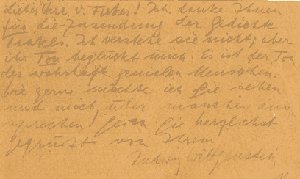 Lieber Herr v. Ficker! Ich danke Ihnen
für die Zusendung der Gedichte
Trakls. Ich verstehe sie nicht; aber
ihr Ton beglückt mich. Es ist der Ton
des wahrhaft genialen Menschen.
Wie gerne möchte ich Sie sehen
und mich über manches aus-
sprechen! Seien Sie herzlichst
gegrüßt von Ihrem
Ludwig Wittgenstein